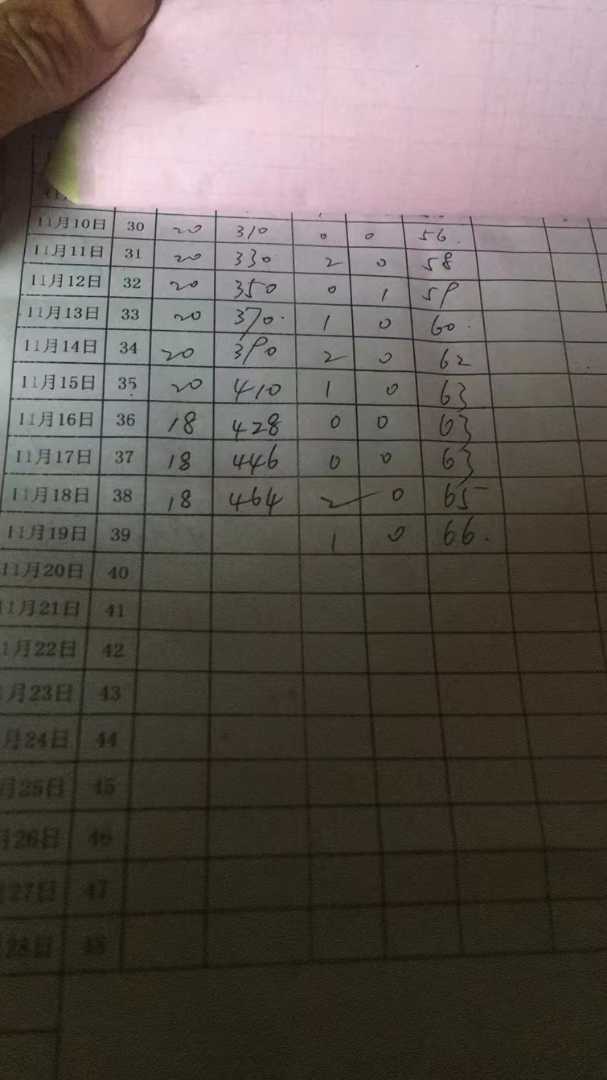 11月10日 30 20 310 0 0 56.
11月11日 31 20 330 2 0 58
11月12日 32 20 350 0 1 59
11月13日 33 20 370. 1 0 60.
11月14日 34 20 390 2 0 62
11月15日 35 20 410 1 0 63
11月16日 36 18 428 0 0 63
11月17日 37 18 446 0 0 63
11月18日 38 18 464 2 0 65
11月19日 39 1 0 66.
11月20日 40
11月21日 41
1月22日 42
月23日 43
月24日 44
月25日 45
月26日 46
27日 47
28日 48